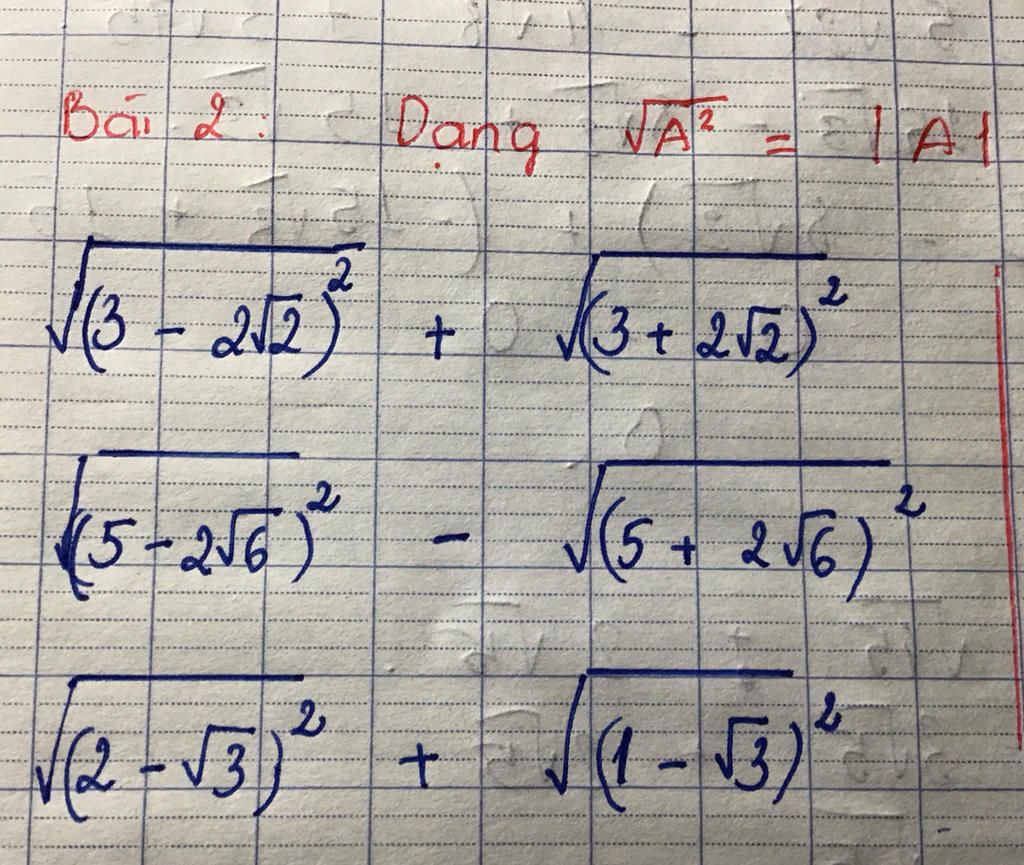 Bài 2: Dạng √A² = |A|
√(3 - 2√2)² + √(3 + 2√2)²
√(5 - 2√6)² - √(5 + 2√6)²
√(2 - √3)² + √(1 - √3)²